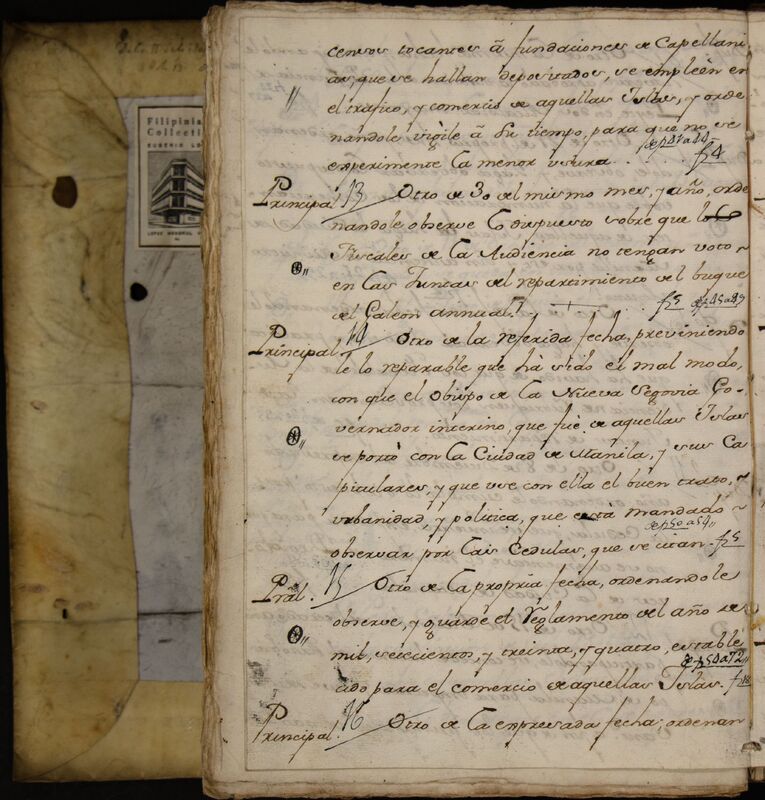 Filipinia
Collecti
EUGENIO LO
LOPEZ MEMORIAL M
censos tocantes â fundaciones de Capellani
as, que se hallan depositados, se empleèn en
el trafico, y comercio de aquellas Yslas, y orde
nandole vigile â su tiempo, para que no se
experimente la menor vsura. . . . f 4
de p 41 a 44
Principal 13 Otro de 30 del mismo mes, y año, orde
nandole observe lo dispuesto sobre que los
Fiscales de la Audiencia no tengan voto
en las Juntas del repartimiento del buque
del Galeon annual. f 5 de p 45 a 49
Principal 14 Otro de la referida fecha, previniendo
le lo reparable que hà sido el mal modo,
con que el Obispo de la Nueva Segovia Go
vernador interino, que fuè de aquellas Yslas
se portò con la Ciudad de Manila, y sus Ca
pitulares, y que vse con ella el buen trato,
vrbanidad, y politica, que està mandado
de p 50 a 54
observar por las Cedulas, que se citan. f 5
Pràl. 15 Otro de la propria fecha, ordenandole
observe, y guarde el Reglamento del año de
mil, setecientos, y treinta, y quatro, estable
cido para el comercio de aquellas Yslas. f 18
Principal 16 Otro de la expresada fecha, ordenan